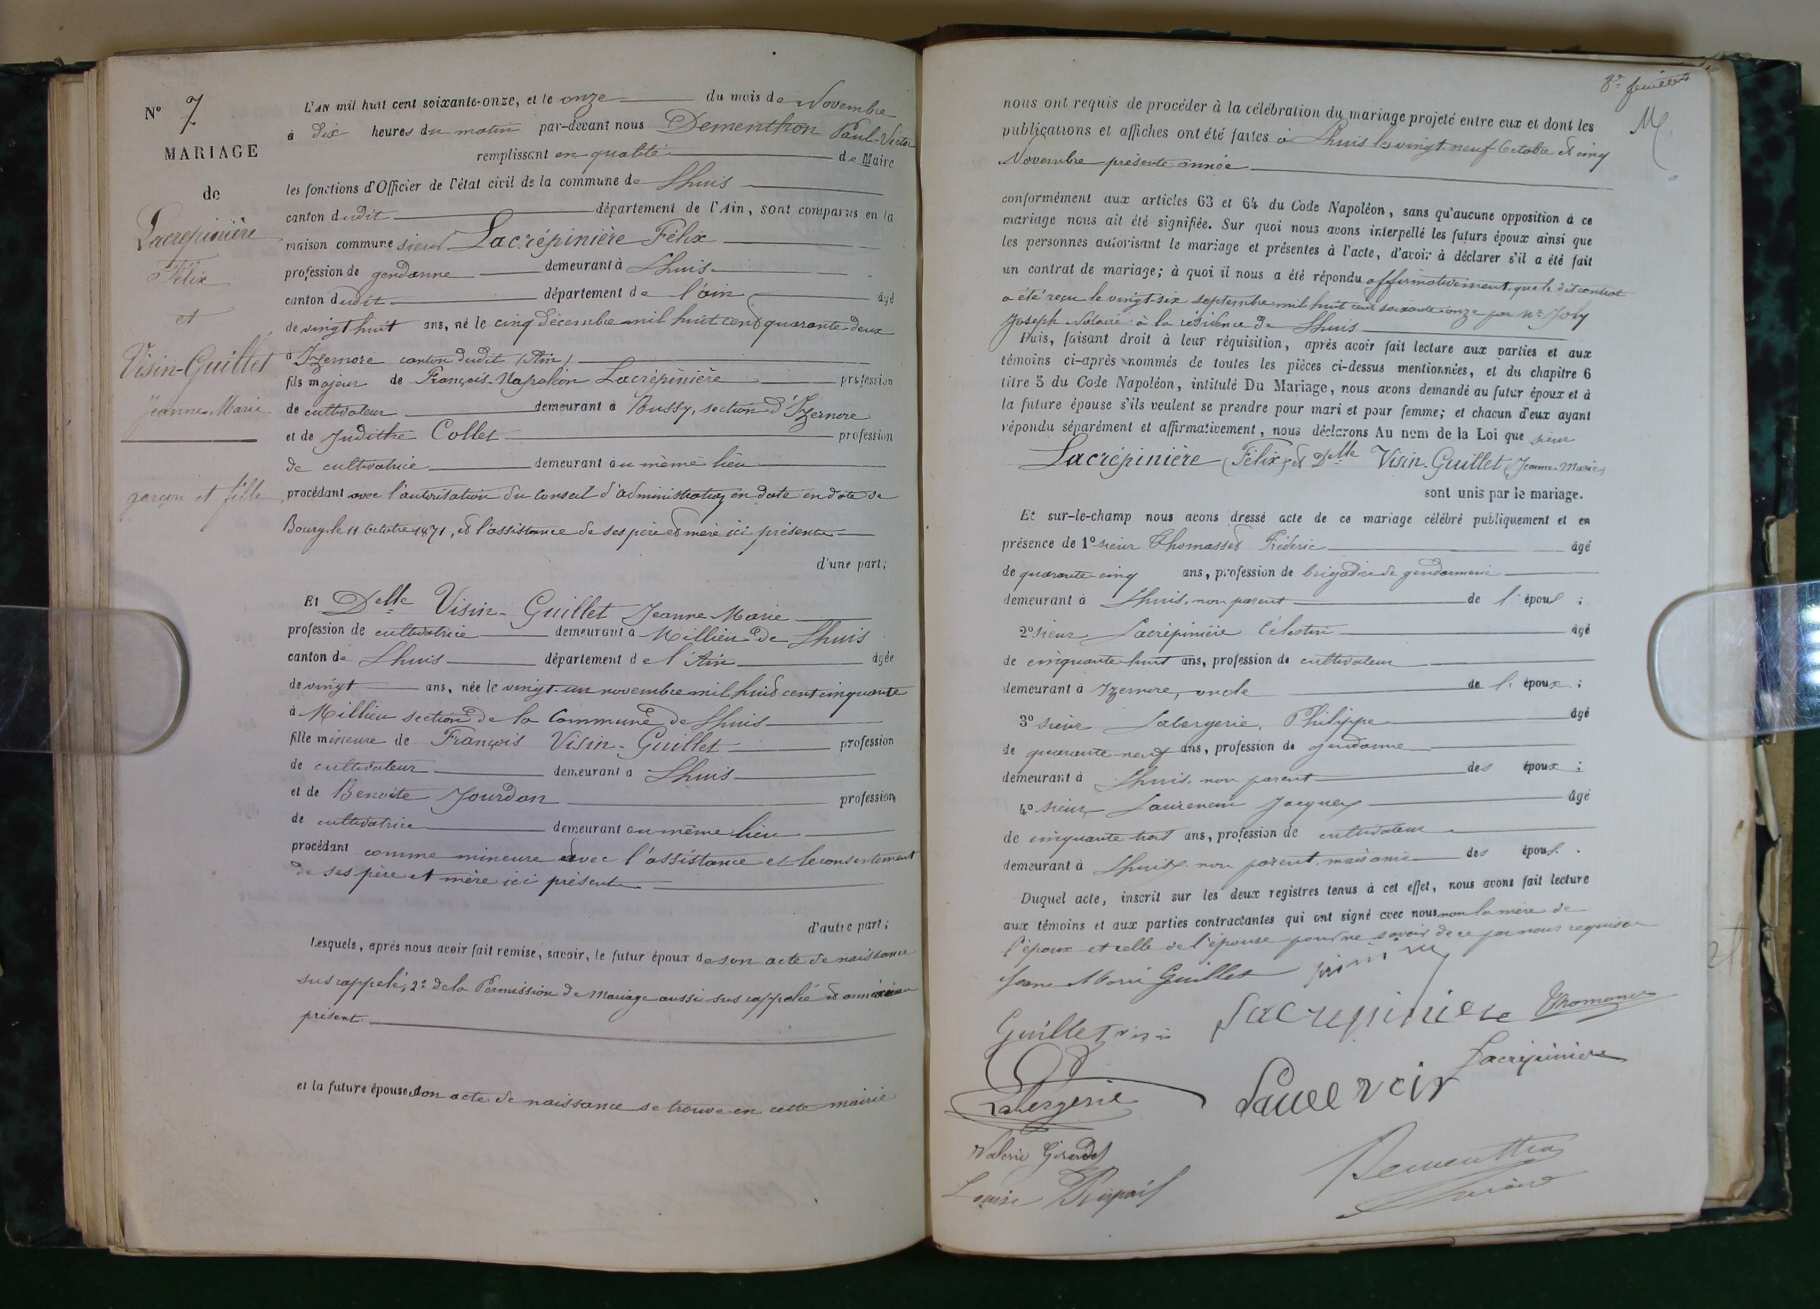 N° 7
MARIAGE
de
Lacrépinière
Félix
et
Visin-Guillet
Jeanne-Marie
garçon et fille
L'AN mil huit cent soixante-onze, et le onze du mois de Novembre
à dix heures du matin par-devant nous Dementhon Paul-Victor
remplissant en qualité de Maire
les fonctions d'Officier de l'état civil de la commune de Lhuis
canton dudit département de l'Ain, sont comparus en la
maison commune sieur Lacrépinière Félix
profession de gendarme demeurant à Lhuis
canton dudit département de l'ain âgé
de vingt huit ans, né le cinq décembre mil huit cent quarante deux
à Izernore canton dudit (Ain)
fils majeur de François-Napoléon Lacrépinière profession
de cultivateur demeurant à Bussy, section d'Izernore
et de Judithe Collet profession
de cultivatrice demeurant au même lieu
procédant avec l'autorisation du conseil d'administration en date en date de
Bourg, le 11 Octobre 1871, et l'assistance de ses père et mère ici présents
d'une part;
Et Delle Visin-Guillet Jeanne Marie
profession de cultivatrice demeurant à Millieu de Lhuis
canton de Lhuis département de l'Ain âgée
de vingt ans, née le vingt-un novembre mil huit cent cinquante
à Millieu section de la Commune de Lhuis
fille mineure de François Visin-Guillet profession
de cultivateur demeurant à Lhuis
et de Benoite Jourdan profession
de cultivatrice demeurant au même lieu
procédant comme mineure avec l'assistance et le consentement
de ses père et mère ici présents
d'autre part;
Lesquels, après nous avoir fait remise, savoir, le futur époux de son acte de naissance
sus rappelé, 2° de la Permission de Mariage aussi sus rappelé et
présent
et la future épouse, son acte de naissance se trouve en cette mairie
8e feuillet
nous ont requis de procéder à la célébration du mariage projeté entre eux et dont les
publications et affiches ont été faites à Lhuis les vingt-neuf Octobre et cinq
Novembre présente année
conformément aux articles 63 et 64 du Code Napoléon, sans qu'aucune opposition à ce
mariage nous ait été signifiée. Sur quoi nous avons interpellé les futurs époux ainsi que
les personnes autorisant le mariage et présentes à l'acte, d'avoir à déclarer s'il a été fait
un contrat de mariage; à quoi il nous a été répondu affirmativement que le dit contrat
a été reçu le vingt-six septembre mil huit cent soixante onze par Me Joly
Joseph Notaire à la résidence de Lhuis
Puis, faisant droit à leur réquisition, après avoir fait lecture aux parties et aux
témoins ci-après nommés de toutes les pièces ci-dessus mentionnées, et du chapitre 6
titre 5 du Code Napoléon, intitulé Du Mariage, nous avons demandé au futur époux et à
la future épouse s'ils veulent se prendre pour mari et pour femme; et chacun d'eux ayant
répondu séparément et affirmativement, nous déclarons Au nom de la Loi que sieur
Lacrépinière (Félix) et Delle Visin-Guillet (Jeanne-Marie)
sont unis par le mariage.
Et sur-le-champ nous avons dressé acte de ce mariage célébré publiquement et en
présence de 1° sieur Thomasset Fréderic âgé
de quarante-cinq ans, profession de brigadier de gendarmerie
demeurant à Lhuis, non parent de l'époux;
2° sieur Lacrépinière Célestin âgé
de cinquante huit ans, profession de cultivateur
demeurant à Izernore, oncle de l'époux;
3° sieur Labergerie Philippe âgé
de quarante-neuf ans, profession de gendarme
demeurant à Lhuis, non parent des époux;
4° sieur Laurencin Jacques âgé
de cinquante trois ans, profession de cultivateur
demeurant à Lhuis, non parent, mais ami des époux.
Duquel acte, inscrit sur les deux registres tenus à cet effet, nous avons fait lecture
aux témoins et aux parties contractantes qui ont signé avec nous, non la mère de
l'époux et celle de l'épouse pour ne savoir de ce par nous requises
Jeane Marie Guillet
Guillet visin Lacrepiniere
Labergerie Lacrépinière
Valerie
Louise
Dementhon